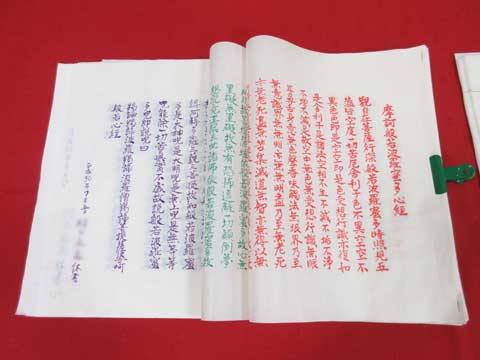 摩訶般若波羅蜜多心經
觀自在菩薩行深般若波羅蜜多時照見五
蘊皆空度一切苦厄舍利子色不異空空不
異色色即是空空即是色受想行識亦復如
是舍利子是諸法空相不生不滅不垢不淨
不增不減是故空中無色無受想行識無眼
耳鼻舌身意無色聲香味觸法無眼界乃至
無意識界無無明亦無無明盡乃至無老死
亦無老死盡無苦集滅道無智亦無得以無
罣礙無罣礙故無有恐怖遠離一切顛倒夢
想究竟涅槃三世諸佛依般若波羅蜜多故
得阿耨多羅三藐三菩提故知般若波羅蜜
多是大神呪是大明呪是無上呪是無等等
呪能除一切苦真實不虛故說般若波羅蜜
多呪即說呪曰
羯諦羯諦波羅羯諦波羅僧羯諦菩提薩婆訶
般若心經